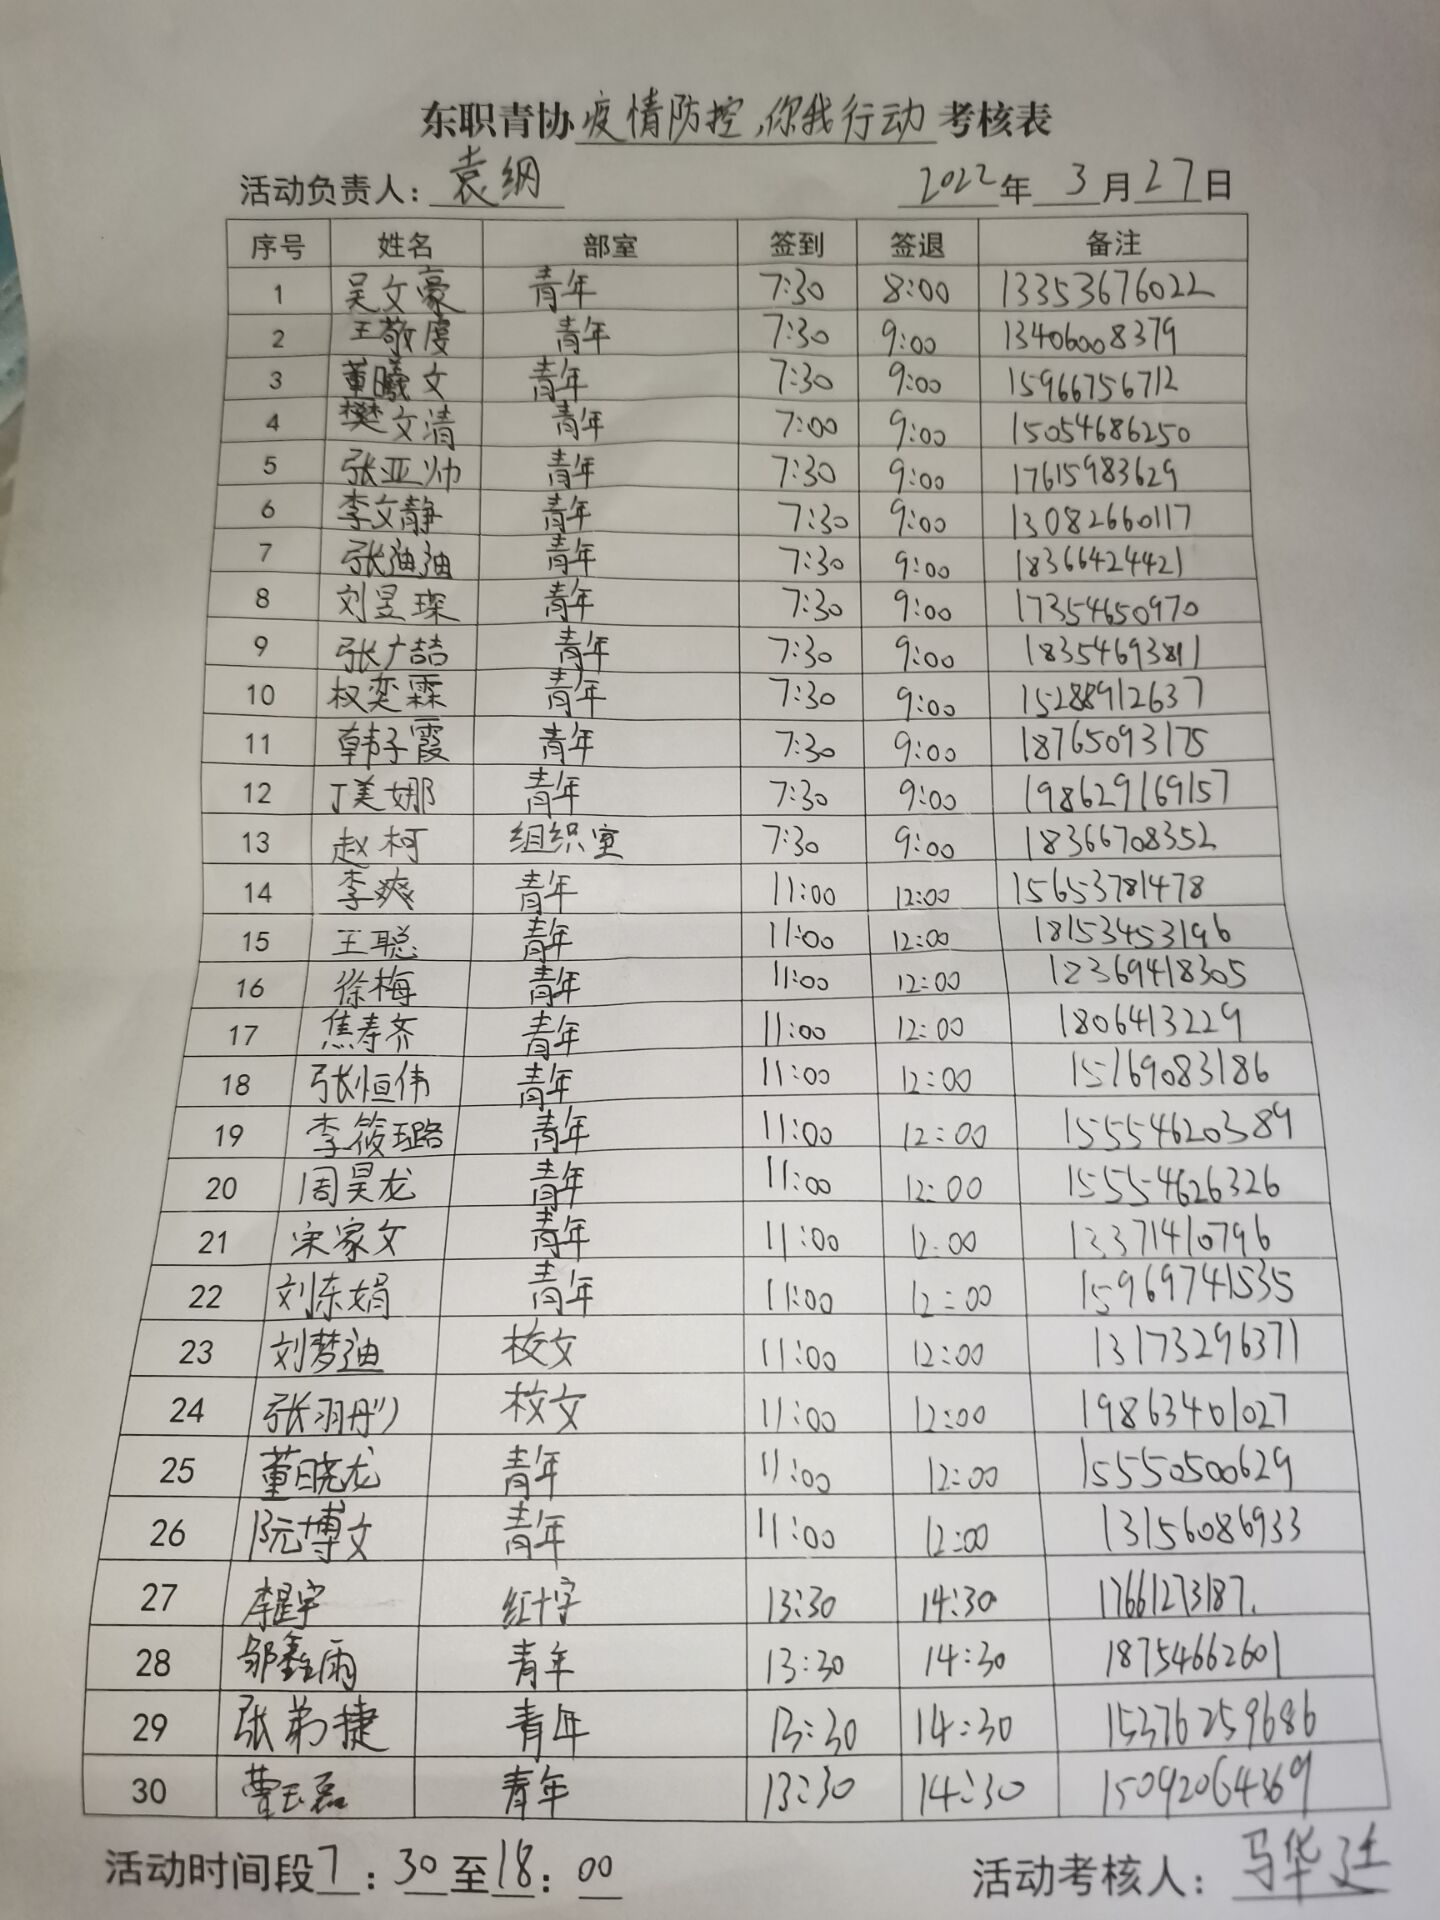 东职青协疫情防控,你我行动考核表
活动负责人: 袁纲 2022年 3月27日
序号 姓名 部室 签到 签退 备注
1 吴文豪 青年 7:30 8:00 13353676022
2 王敬虔 青年 7:30 9:00 13406008379
3 董曦文 青年 7:30 9:00 15966756712
4 樊文清 青年 7:00 9:00 15054686250
5 张亚帅 青年 7:30 9:00 17615983629
6 李文静 青年 7:30 9:00 13082660117
7 张迪迪 青年 7:30 9:00 18366424421
8 刘昱琛 青年 7:30 9:00 17354650970
9 张广喆 青年 7:30 9:00 18354693811
10 权奕霖 青年 7:30 9:00 15288912637
11 韩子霞 青年 7:30 9:00 18765093175
12 丁美娜 青年 7:30 9:00 198629169157
13 赵柯 组织室 7:30 9:00 18366708352
14 李爽 青年 11:00 12:00 15653781478
15 王聪 青年 11:00 12:00 18153453196
16 徐梅 青年 11:00 12:00 12369418305
17 焦寿齐 青年 11:00 12:00 1806413229
18 张恒伟 青年 11:00 12:00 15169083186
19 李筱璐 青年 11:00 12:00 15554620389
20 周昊龙 青年 11:00 12:00 15554626326
21 宋家文 青年 11:00 12:00 13371410796
22 刘东娟 青年 11:00 12:00 15969741535
23 刘梦迪 校文 11:00 12:00 13173296371
24 张羽彤 校文 11:00 12:00 19863401027
25 董晓龙 青年 11:00 12:00 15550500629
26 阮博文 青年 11:00 12:00 13156086933
27 李星宇 红十字 13:30 14:30 17661273187.
28 邹鑫雨 青年 13:30 14:30 18754662601
29 张弟捷 青年 13:30 14:30 15376259686
30 曹玉磊 青年 13:30 14:30 15092064369
活动时间段7:30至18:00 活动考核人: 马华廷